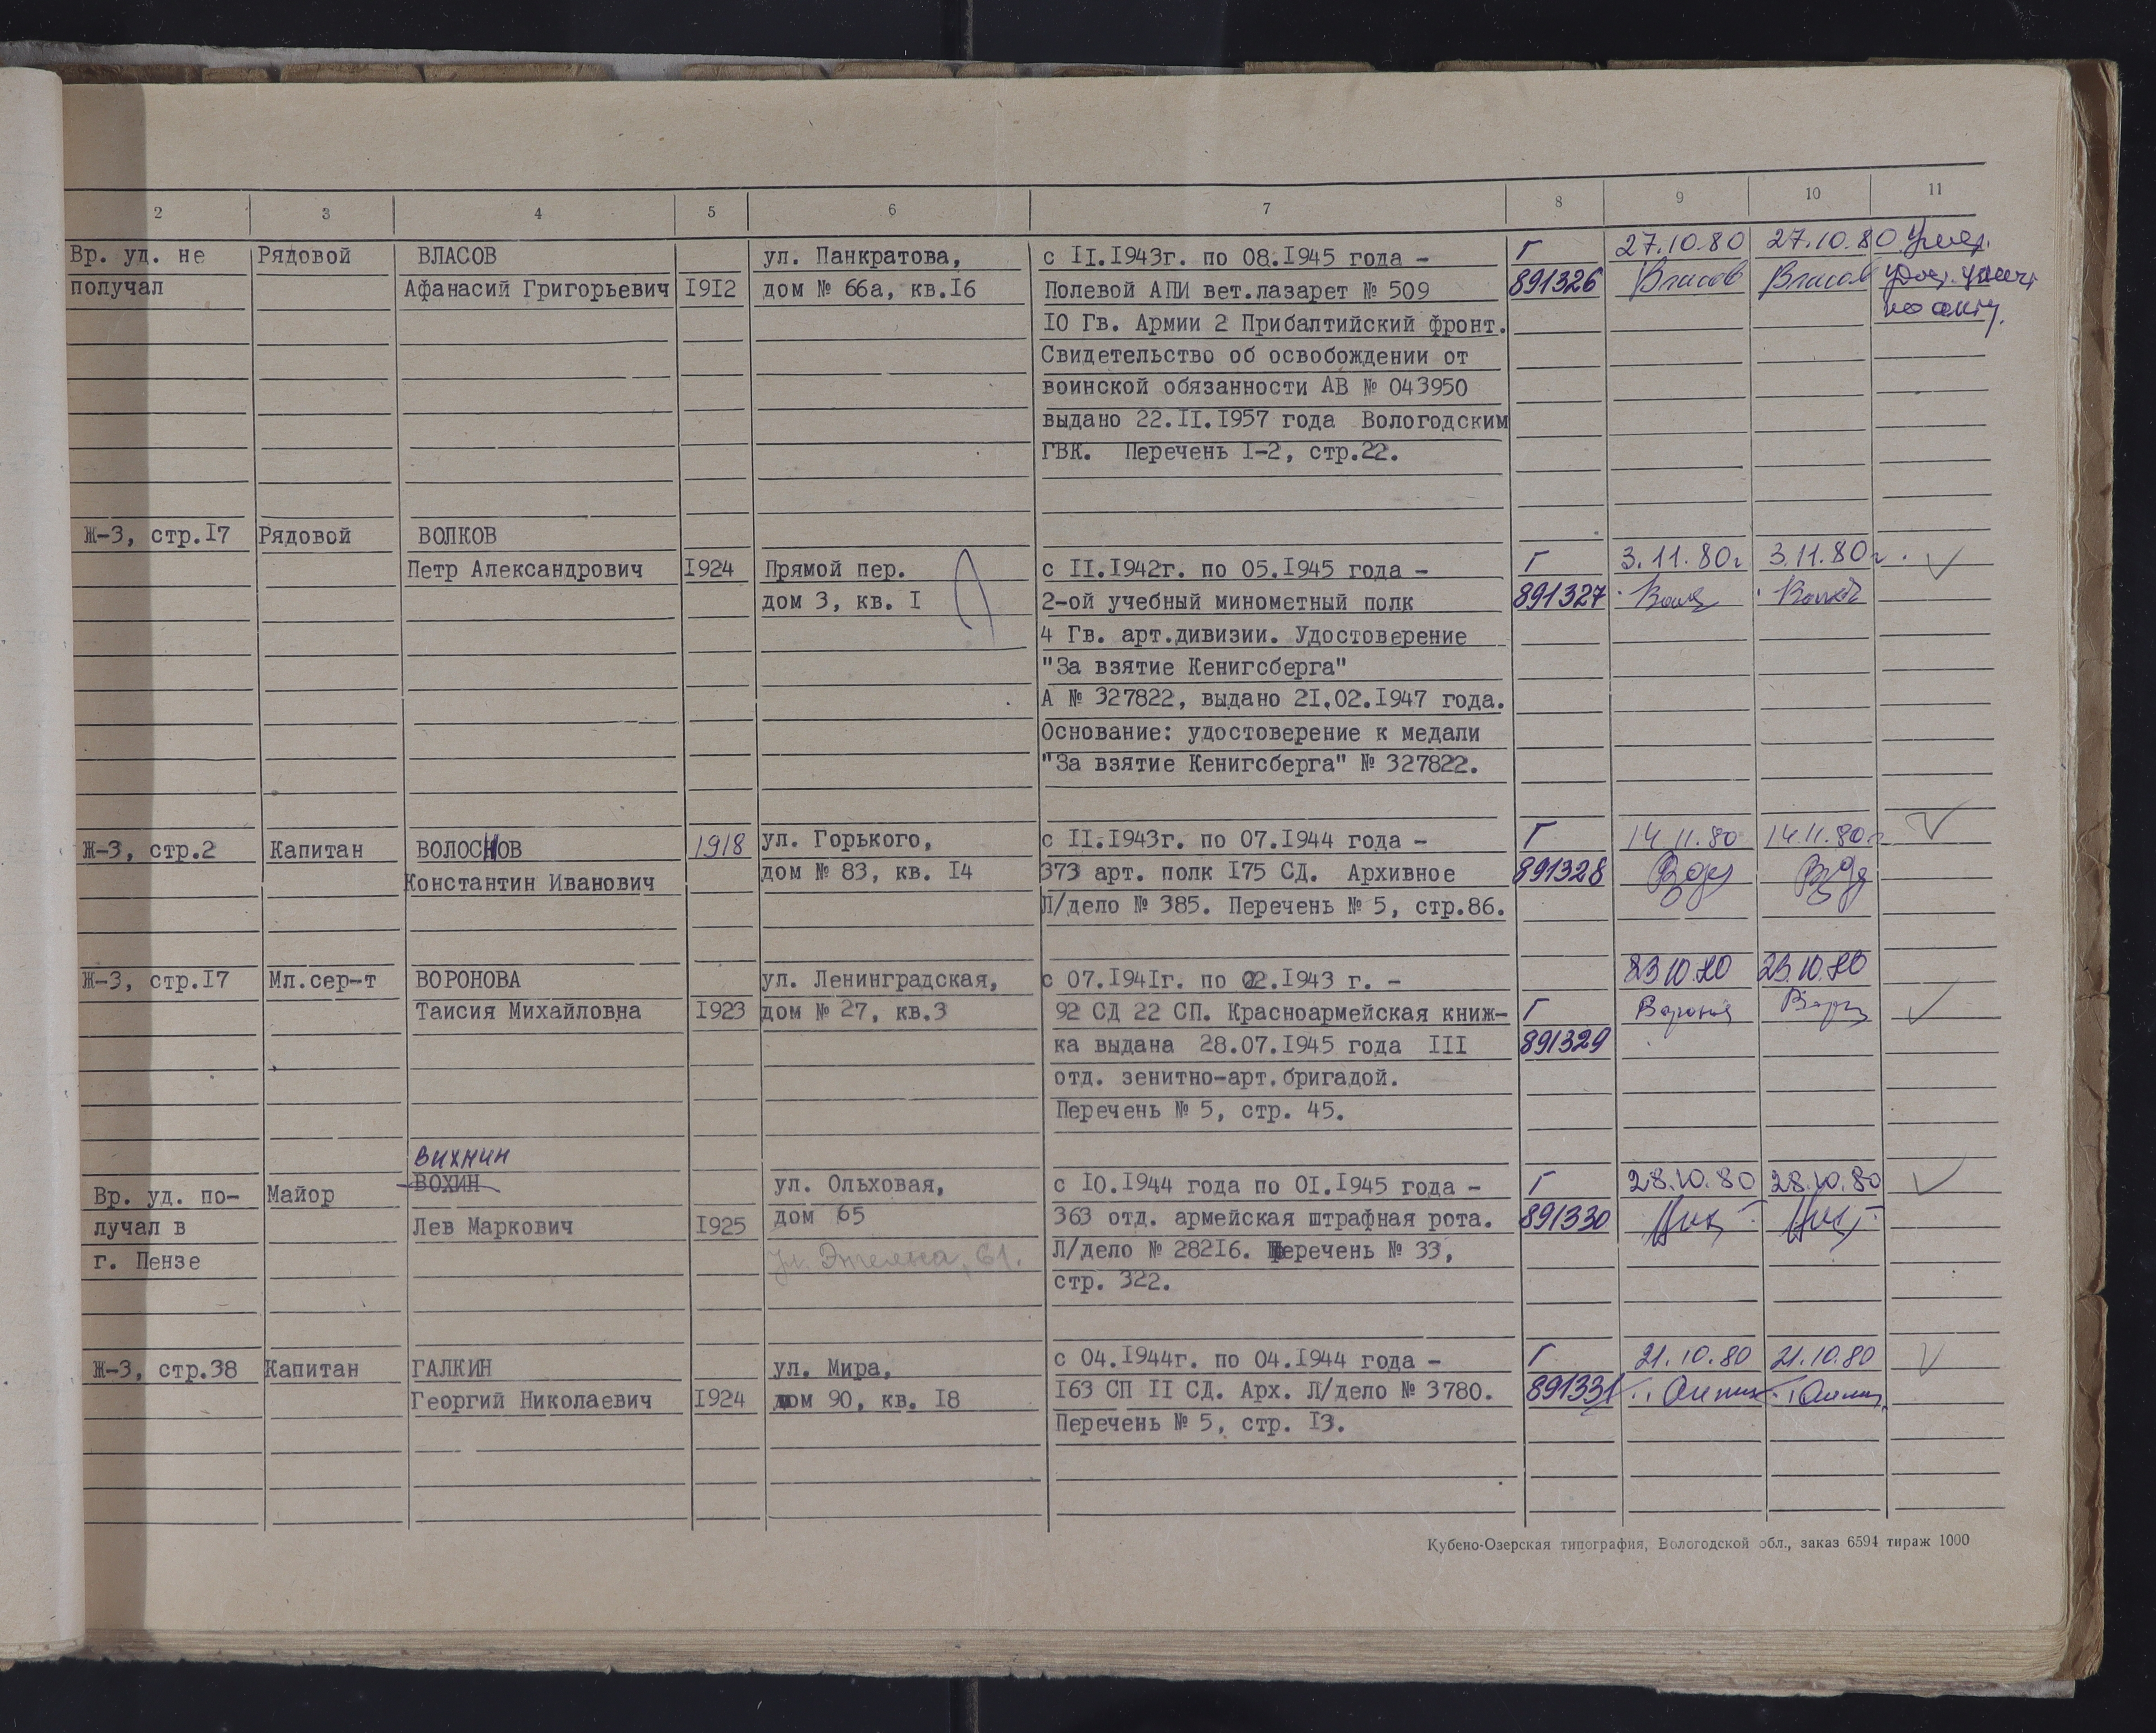 2 3 4 5 6 7 8 9 10 11
Вр. уд. не Рядовой ВЛАСОВ ул. Панкратова, с II.I943г. по 08.I945 года – Г 27.10.80 27.10.80 Умер.
получал Афанасий Григорьевич I9I2 дом № 66а, кв.I6 Полевой АПИ вет.лазарет № 509 891326 Власов Власов
I0 Гв. Армии 2 Прибалтийский фронт. по акту.
Свидетельство об освобождении от
воинской обязанности АВ № 043950
выдано 22.II.I957 года Вологодским
ГВК. Перечень I-2, стр.22.
Ж-3, стр.I7 Рядовой ВОЛКОВ
Петр Александрович I924 Прямой пер. с II.I942г. по 05.I945 года – Г 3.11.80г 3.11.80г.
дом 3, кв. I 2-ой учебный минометный полк 891327
4 Гв. арт.дивизии. Удостоверение
"За взятие Кенигсберга"
А № 327822, выдано 2I.02.I947 года.
Основание: удостоверение к медали
"За взятие Кенигсберга" № 327822.
Ж-3, стр.2 Капитан ВОЛОСНОВ 1918 ул. Горького, с II.I943г. по 07.I944 года – Г 14.11.80 14.11.80г
Константин Иванович дом № 83, кв. I4 373 арт. полк I75 СД. Архивное 891328
Л/дело № 385. Перечень № 5, стр.86.
Ж-3, стр.I7 Мл.сер-т ВОРОНОВА ул. Ленинградская, с 07.I94Iг. по 02.I943 г. – 23.10.80 23.10.80
Таисия Михайловна I923 дом № 27, кв.3 92 СД 22 СП. Красноармейская книж- Г
ка выдана 28.07.I945 года III 891329
отд. зенитно-арт.бригадой.
Перечень № 5, стр. 45.
ВИХНИН
Вр. уд. по- Майор ВОХИН ул. Ольховая, с I0.I944 года по 0I.I945 года – Г 28.10.80 28.10.80
лучал в Лев Маркович I925 дом 65 363 отд. армейская штрафная рота. 891330
г. Пензе ул. Энгельса, 61. Л/дело № 282I6. Перечень № 33,
стр. 322.
Ж-3, стр.38 Капитан ГАЛКИН ул. Мира, с 04.I944г. по 04.I944 года – Г 21.10.80 21.10.80
Георгий Николаевич I924 дом 90, кв. I8 I63 СП II СД. Арх. Л/дело № 3780. 891331
Перечень № 5, стр. I3.
Кубено-Озерская типография, Вологодской обл., заказ 6594 тираж 1000